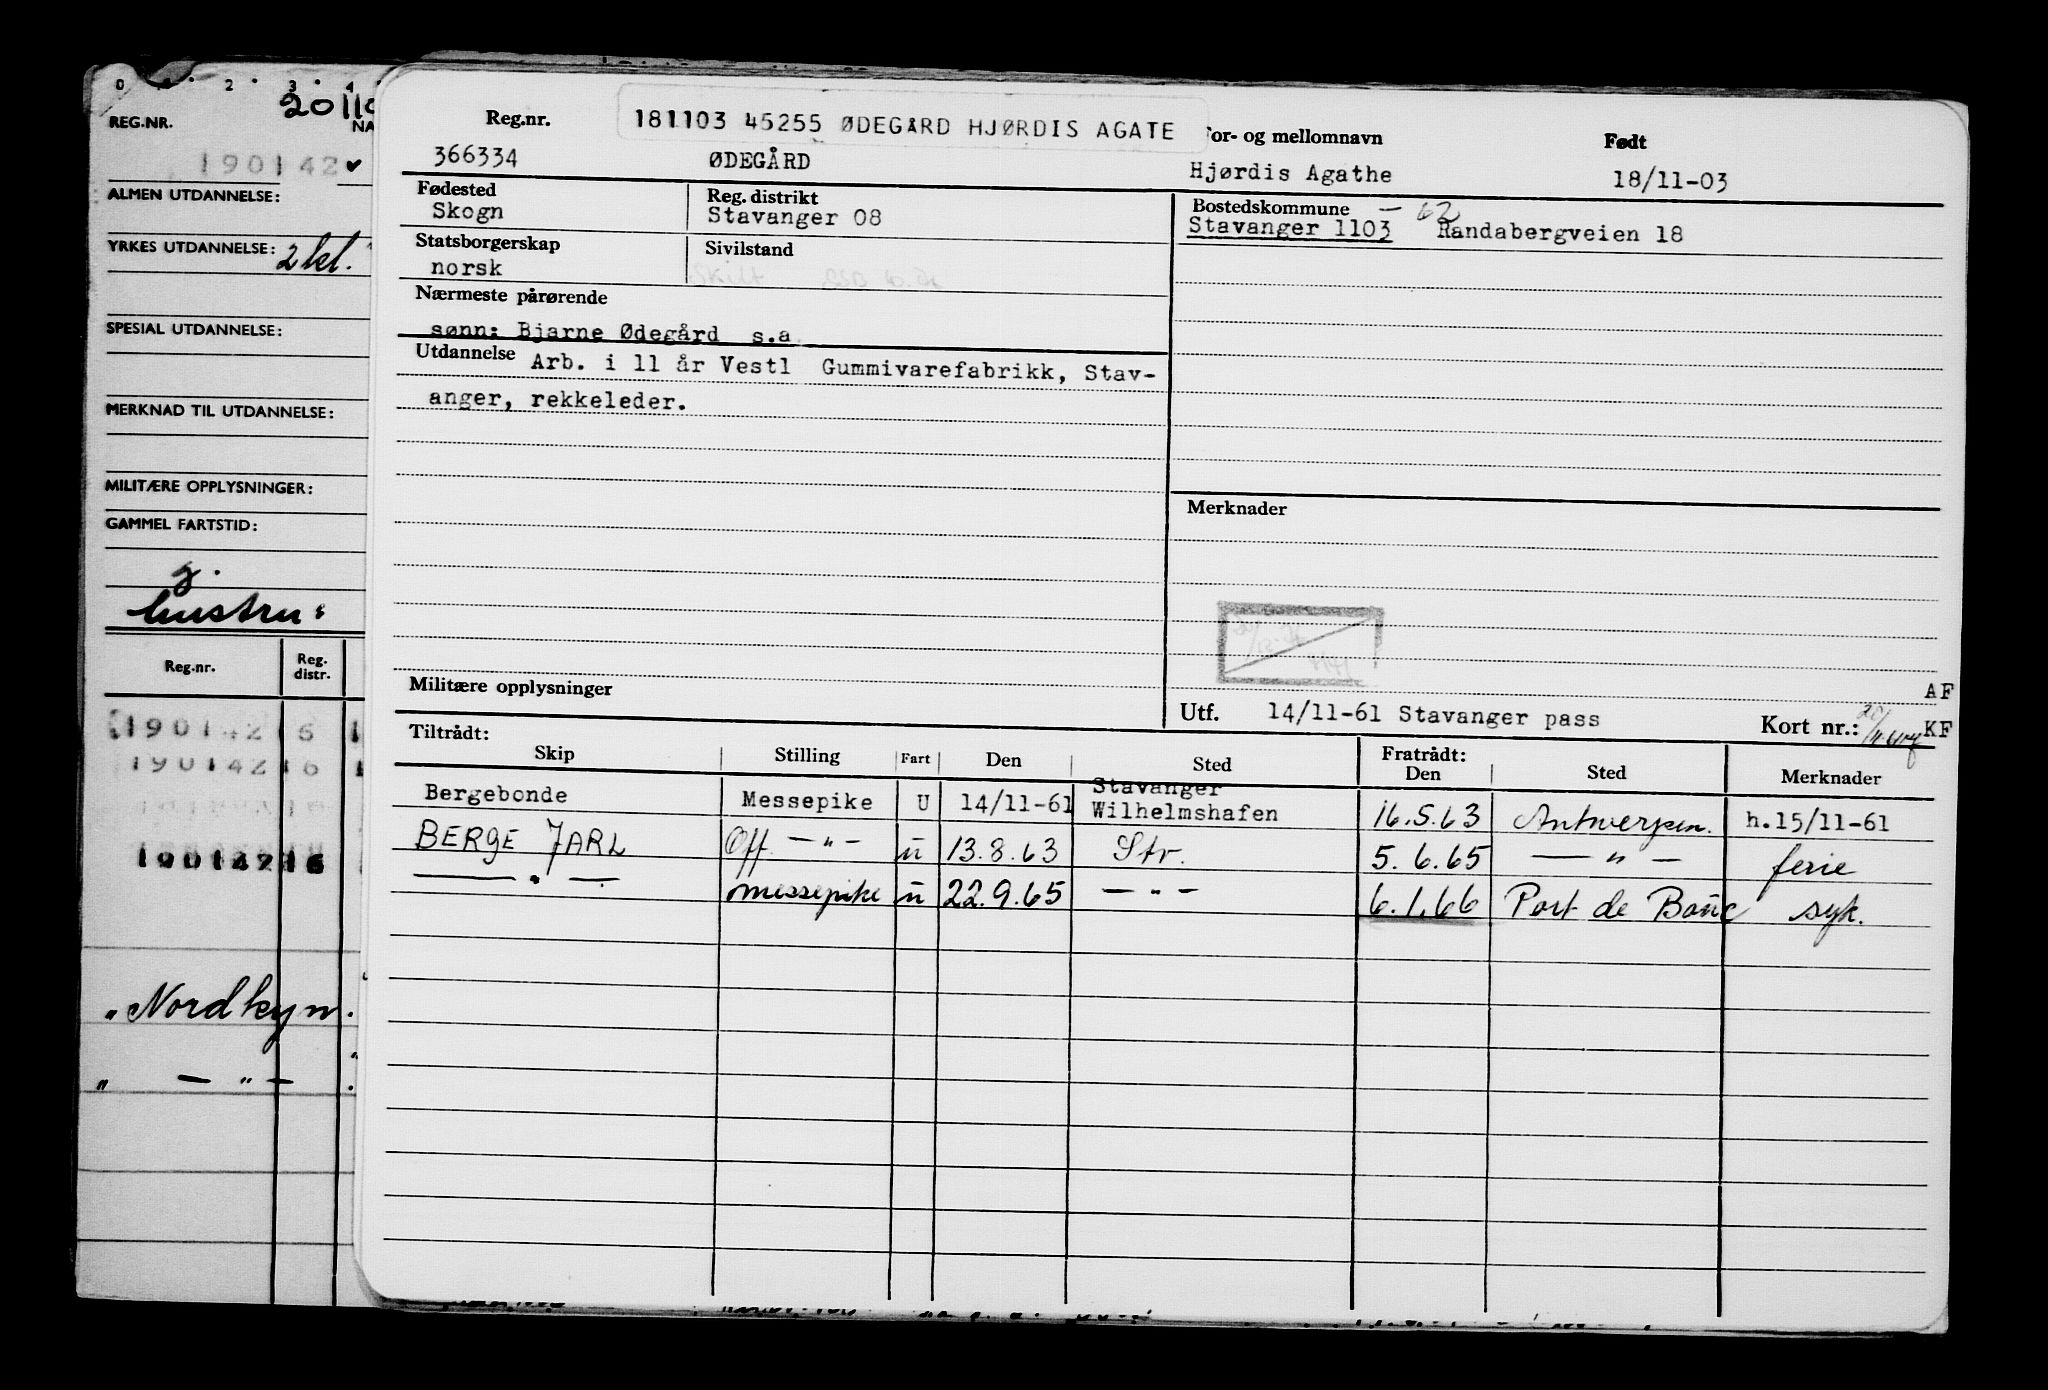 0 2 3 4
20110
REG.NR. NA
190142 ✔
ALMEN UTDANNELSE:
YRKES UTDANNELSE: 2 kl.
SPESIAL UTDANNELSE:
MERKNAD TIL UTDANNELSE:
MILITÆRE OPPLYSNINGER:
GAMMEL FARTSTID:
g.
hustru:
Reg.nr. Reg. distr.
190142 6
190142 6
190142 6
"Nordkyn.
" — " —
181103 45255 ØDEGÅRD HJØRDIS AGATE
Reg.nr. For- og mellomnavn Født
366334 ØDEGÅRD Hjørdis Agathe 18/11-03
Fødested Reg. distrikt Bostedskommune — 62
Skogn Stavanger 08 Stavanger 1103 Randabergveien 18
Statsborgerskap Sivilstand
norsk Skilt
Nærmeste pårørende
sønn: Bjarne Ødegård s.a
Utdannelse Arb. i 11 år Vestl Gummivarefabrikk, Stav-
anger, rekkeleder.
Merknader
Militære opplysninger
AF
Utf. 14/11-61 Stavanger pass Kort nr.: KF
Tiltrådt: Fratrådt:
Skip Stilling Fart Den Sted Den Sted Merknader
Stavanger
Bergebonde Messepike U 14/11-61 Wilhelmshafen 16.5.63 Antwerpen. h.15/11-61
BERGE JARL Off. — " — u 13.8.63 Str. 5.6.65 — " — ferie
— " — messepike u 22.9.65 — " — 6.1.66 Port de Bouc syk.